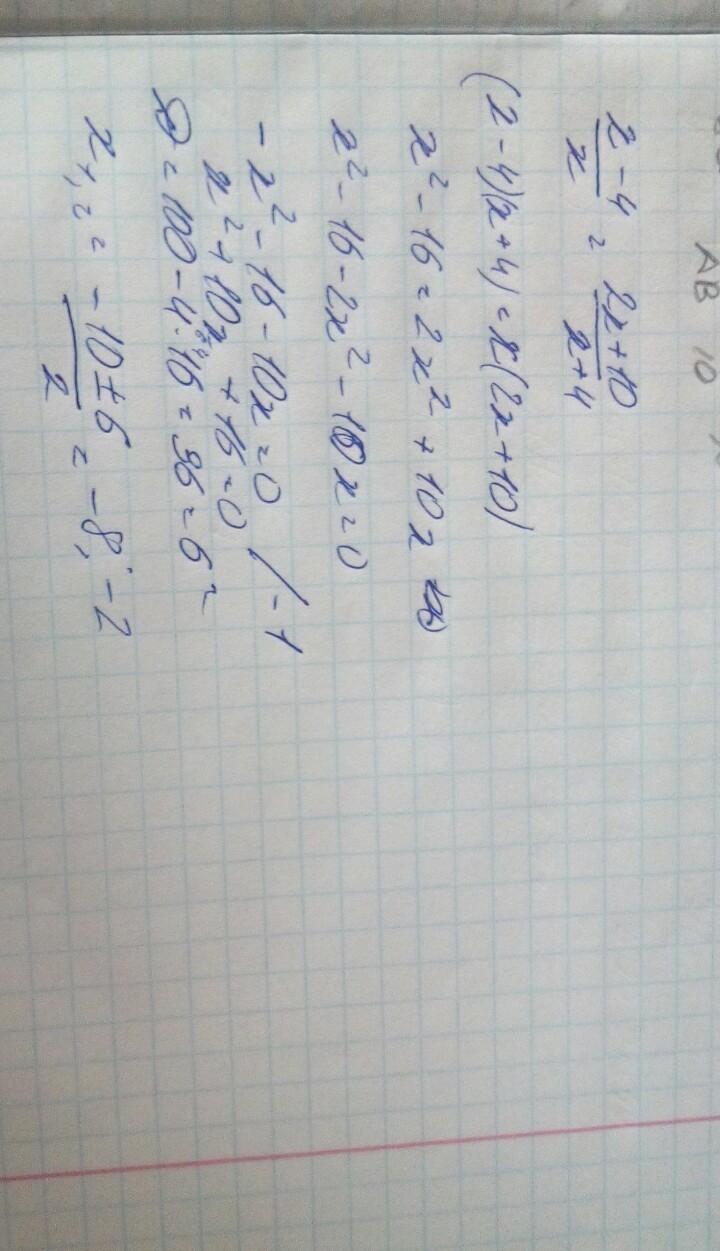 AB 10
x-4/x = 2x+10/x+4
(x-4)(x+4)=x(2x+10)
x²-16=2x²+10x
x²-16-2x²-10x=0
-x²-16-10x=0 /-1
x²+10x+16=0
D=100-4·16=36=6²
64
x₁,₂ = -10±6/2 = -8; -2